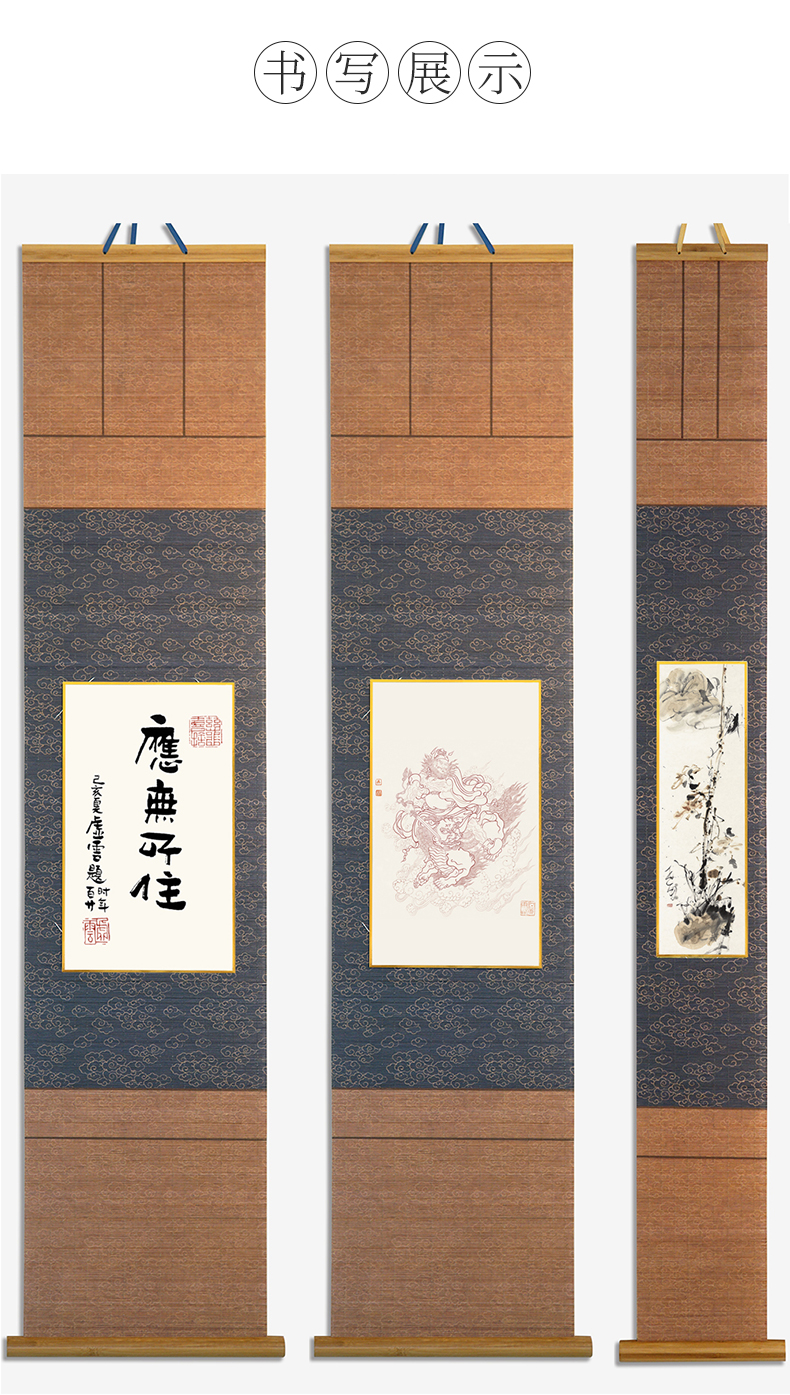 书写展示
應無所住
己亥夏虚雲題
时年
百廿